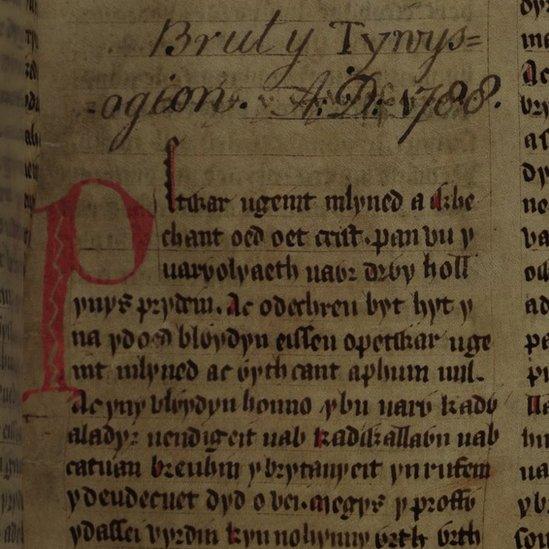 Brut y Tywys=
-ogion. A.D. 1788.
Petwar ugeint mlyned a chỽe
chant oed oet crist. pan vu y
uarỽolyaeth uaỽr drỽy holl
ynys prydein. Ac odechreu byt hyt y
na ydoed blỽydyn eisseu opetwar uge
int mlyned ac ỽythcant aphum mil.
Ac yny blỽydyn honno ybu uarỽ kadỽ
aladyr uendigeit uab kadwallaỽn uab
catuan brenhin ybrytanyeit ynrufein
ydeudecuet dyd o vei. megys y proffỽ
ydassei vyrdin kynnohynny ỽrth ỽrth